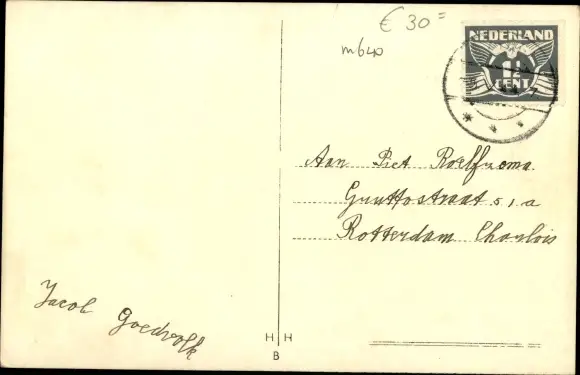 € 30=
m640
NEDERLAND
1½
CENT
Aan Piet Roelfzema
Gruttostraat 51a
Rotterdam Charlois
Jacob Goedvolk
H H
B